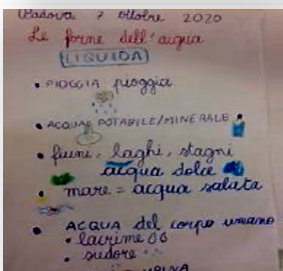 Padova 7 ottobre 2020
Le forme dell'acqua
LIQUIDA
• PIOGGIA pioggia
• ACQUA POTABILE/MINERALE
• fiumi, laghi, stagni
acqua dolce
• mare = acqua salata
• ACQUA del corpo umano
• lacrime
• sudore